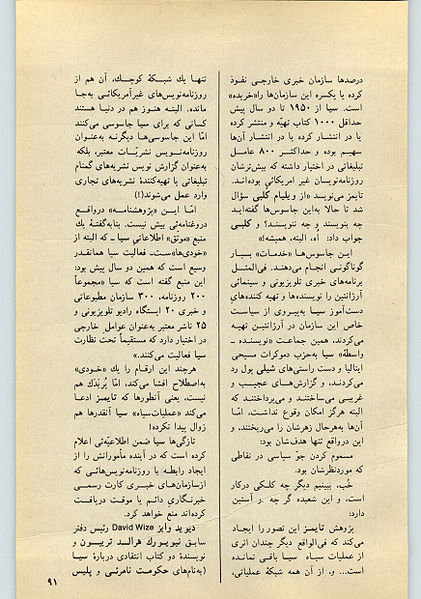 درصدها سازمان خبری خارجی نفوذ
کرده یا یکسره این سازمان‌ها را «خریده»
است. سیا از ۱۹۵۰ تا دو سال پیش
حداقل ۱۰۰۰ کتاب تهیّه و منتشر کرده
یا در انتشار کرده یا در انتشار آن‌ها
سهیم بوده و حداکثر ۸۰۰ عامل
تبلیغاتی در اختیار داشته که بیش‌ترشان
روزنامه‌نویسان غیر امریکائی بوده‌اند.
تایمز می‌نویسد: «از ویلیام کلبی سؤال
شد تا حالا به‌این جاسوس‌ها گفته‌اید
چه بنویسند و چه ننویسند؟ و کلبی
جواب داد: اُه، البته، همیشه!»
این جاسوس‌ها «خدمات» بسیار
گوناگونی انجام می‌دهند. فی‌المثل
برنامه‌های خبری تلویزیونی و سینمائی
آرژانتین را نویسنده‌ها و تهیه کننده‌های
دست‌آموز سیا به‌پیروی از سیاست
خاص این سازمان در آرژانتین تهیه
می‌کردند، همین جماعت «نویسنده ـ
واسطه» سیا به‌حزب دموکرات مسیحی
ایتالیا و دست راستی‌های شیلی پول رد
می‌کردند، و گزارش‌های عجیب و
غریبی می‌ساختند و می‌پرداختند که
البته هرگز امکان وقوع نداشت. امّا
آن‌ها به‌هرحال زهرشان را می‌ریختند، و
این درواقع تنها هدف‌شان بود:
مسموم کردن جوّ سیاسی در نقاطی
که موردنظرشان بود.
خُب، ببینیم دیگر چه کلکی درکار
است، و این شعبده گر چه در آستین
دارد:
پژوهش تایمز این تصور را ایجاد
می‌کند که فی‌الواقع دیگر چندان اثری
از عملیات سیاه سیا باقی نمانده
است... و، از آن همه شبکهٔ عملیاتی،
تنها یك شبکهٔ کوچك، آن هم از
روزنامه‌نویس‌های غیرآمریکائی به‌جا
مانده. البته هنوز هم در دنیا هستند
کسانی که برای سیا جاسوسی می‌کنند
امّا این جاسوسی‌ها دیگرنه به‌عنوان
روزنامه‌نویس نشریّات معتبر، بلکه
به‌عنوان گزارش نویس نشریه‌های گمنام
تبلیغاتی یا تهیه‌کنندهٔ نشریه‌های تجاری
وارد عمل می‌شوند(!)
امّا این «پژوهشنامه» درواقع
دروغنامه‌ئی بیش نیست. بنابه‌گفتهٔ یك
منبع «موثق» اطلاعاتی سیا ـ که البته از
«خودی‌ها»ست ـ فعالیت سیا همانقدر
وسیع است که همین دو سال پیش بود:
این منبع گفته است که سیا «مجموعاً
۲۰۰ روزنامه، ۳۰۰ سازمان مطبوعاتی
و خبری ۲۰ ایستگاه رادیو تلویزیونی و
۲۵ ناشر معتبر به‌عنوان عوامل خارجی
در اختیار دارد که مستقیماً تحت نظارت
سیا فعالیت می‌کنند.»
هرچند این ارقام را یك «خودی»
به‌اصطلاح افشا می‌کند، امّا پُربَدَك هم
نیست، یعنی آنطورها که تایمز ادعا
می‌کند «عملیات‌سیاه» سیا آنقدرها هم
زوال پیدا نکرده!
تازگی‌ها سیا ضمن اطلاعیّه‌ئی اعلام
کرده است که در آینده مأمورانش را از
ایجاد رابطه با روزنامه‌نویس‌هائی که
ازسازمان‌های خبری کارت رسمی
خبرنگاری دائم یا موقت دریافت
کرده‌اند منع خواهد کرد.
دیوید وایز David Wize رئیس دفتر
سابق نیویورك هرالد تریبون و
نویسندهٔ دو کتاب انتقادی دربارهٔ سیا
(به‌نام‌های حکومت نامرئی و پلیس
۹۱